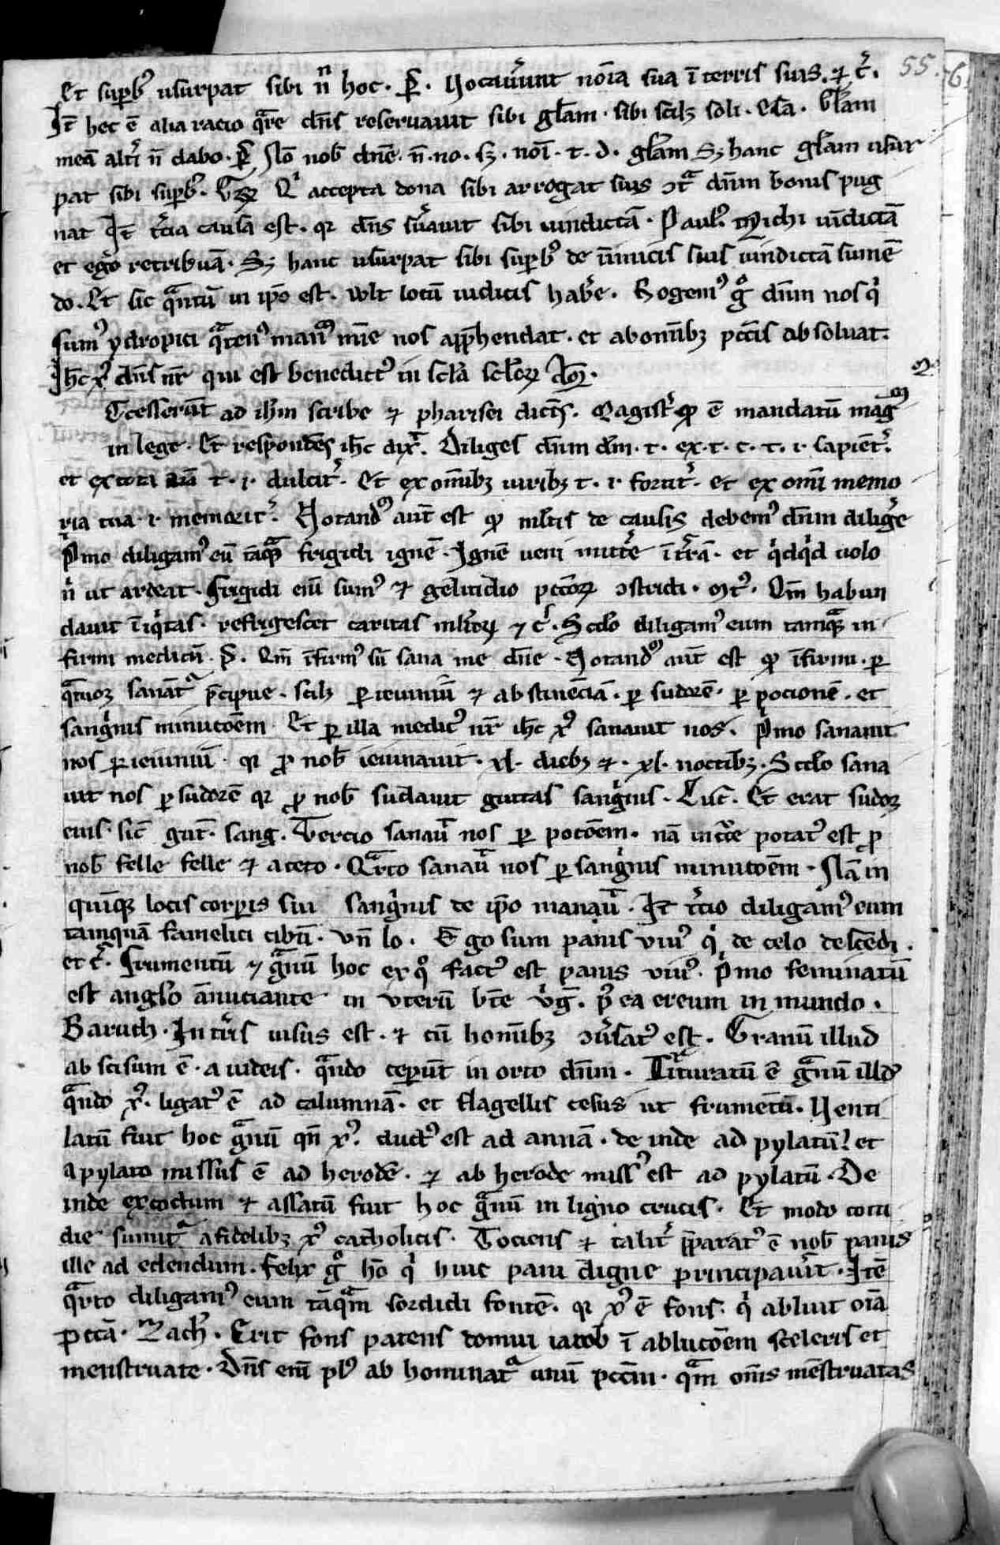 55.
Et supb' usurpat sibi n̄ hoc. p̄s. Uocauer̄unt noīa sua ī terris suis. ⁊ c̄.
It̄ hec ē alia racio quare dn̄s reseruauit sibi gl̄am. sibi scil̄z soli. Ysa. Gl̄am
meā alt̄i n̄ dabo. p̄s Nō nob̄ dn̄e. n̄. no. sꝫ. noī. t. d. gl̄am Sꝫ hanc gl̄am usur
pat sibi supb'. Qͥ accepta dona sibi arrogat suis ↄͭᵃ dn̄m bonis pug
nat It̄ t̄cia causa est. qr dn̄s s̄uauit sibi uindictā. Paulꝰ Michi uīdictā
et ego retribuā. Sꝫ hanc usurpat sibi supb' de inimicis suis uindictā sumē
do. Et sic qᵃntū in ip̄o est. uolt locū iudicis hab̄e. Rogemꝰ gͦ dn̄m nos qͥ
sumꝰ ydropici qᵃtenꝰ manū mīe nos app̄hendat. et ab om̄ibꝫ pcc̄is absoluat.
Ih̄c xp̄c dn̄s nr̄ qui est benedictꝰ in sc̄la sc̄l̄oꝝ Am̄.
Accesser̄ut ad ih̄m scribe ⁊ pharisei dicētes. Magist̄ qͩ ē mandatū magͫ
in lege. Et respondēs ih̄c dix̄. Diliges dn̄m dm̄. t. ex. t. c. t. i. sapient̄.
et ex tota t. i. dulcit̄. Et ex om̄ibꝫ uiribꝫ t. i fortit̄. et ex om̄i memo
ria tua i memorit̄. Notandꝰ aut̄ est qͩ ml̄tis de causis debemꝰ dn̄m diliḡe
P̄mo diligamꝰ eū tāqᵃ frigidi ignē. Ignē ueni mitt̄e ī t̄rā. et qͥdqͥd uolo
nͥ ut ardeat. Frigidi eni sumꝰ ⁊ gelitudīo pcc̄oꝝ ↄstridi. Mt̄. Qm̄ habun
dauit īiqͥtas. refrigescet caritas ml̄toꝝ ⁊ c̄. Sc̄do diligamꝰ eum tamqᵃ in
firmi medicū. p̄s. Qm̄ īfirmꝰ sū sana me dn̄e. Notandꝰ aut̄ est qͩ īfirmi. ꝑ
qᵃtuoꝝ sanātᵃ p̄cipue. scilꝫ ꝑ ieiuniū ⁊ abstinēciā. ꝑ sudorē. ꝑ pocionē. et
sangͥnis minucōem. Et ꝑ illa medicꝰ nr̄ ih̄c xp̄c sanauit nos. P̄mo sanauit
nos ꝑ ieiuniū. qr ꝓ nob̄ ieiunauit. xl. diebꝫ ⁊. xl. noctibꝫ. Sc̄do sana
uit nos ꝑ sudorē qr ꝓ nob̄ sudauit guttas sangͥnis. Luc̄. Et erat sudoꝝ
eius sic̄ gut. sang. Tercio sanauͭ nos ꝑ pocōem. nā in cͥce potatꝰ est ꝓ
nob̄ felle felle ⁊ aceto. Qᵃrto sanauͭ nos ꝑ sangͥnis minucōem. Nā in
quinqꝫ locis corꝑis sui sangͥnis de ip̄o manauͭ. It̄ t̄cio diligamꝰ eum
tamquā famelici cibū. Un̄ Io. Ego sum panis uiuꝰ qͥ de celo descēdi.
et c̄. Frumentū ⁊ gᵃnū hoc ex qͦ factꝰ est panis uiuꝰ. P̄mo seminatū
est angl̄o ānuciante in uterū bt̄e uͥg̅. p̄ea ereum in mundo.
Baruch. In t̄ris uisus est. ⁊ cū hominibꝫ ↄūsatꝰ est. Granū illud
abscisum ē. a iudeis. qᵃndo ceperūt in orto dn̄m. Trituratū ē gᵃnū illd
qᵃndo xp̄c. ligatꝰ ē ad columnā. et flagellis cesus ut frumētū. Uenti
latū fuit hoc gᵃnū qn̄ xp̄c. ductꝰ est ad annā. de inde ad pylatū. et
a pylato missus ē ad herodē. ⁊ ab herode missꝰ est ad pylatū. De
inde excoctum ⁊ assatū fuit hoc gᵃnū in ligno crucis. Et modo coti
die sumitᵃ a fidelibꝫ xp̄c catholicis. Tociens ⁊ talit̄ p̄paratꝰ ē nob̄ panis
ille ad edendum. Felix gͦ hō qͥ huic pani digne principau̅it. Itē
qᵃrto diligamꝰ eum tāqᵃm sordidi fontē. qr xp̄c ē fons. qͥ abluit oīa
pcc̄a. Zach̄. Erit fons patens domui iacob ī ablucōem sceleris et
menstruate. Dn̄s eni plꝰ abhominatᵃ unū pcc̄m. qᵃm om̄s mēstruatas